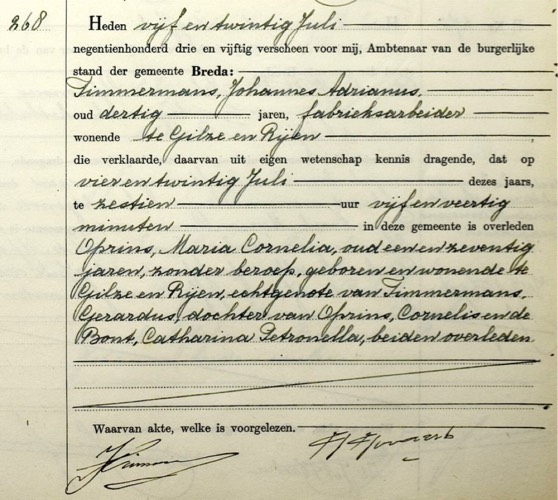 268
Heden vijf en twintig Juli
negentienhonderd drie en vijftig verscheen voor mij, Ambtenaar van de burgerlijke
stand der gemeente Breda:
Timmermans, Johannes Adrianus,
oud dertig jaren, fabrieksarbeider
wonende te Gilze en Rijen
die verklaarde, daarvan uit eigen wetenschap kennis dragende, dat op
vier en twintig Juli dezes jaars,
te zestien uur vijf en veertig
minuten in deze gemeente is overleden
Oprins, Maria Cornelia, oud een en zeventig
jaren, zonder beroep, geboren en wonende te
Gilze en Rijen, echtgenote van Timmermans,
Gerardus, dochter van Oprins, Cornelis en de
Bont, Catharina Petronella, beiden overleden
Waarvan akte, welke is voorgelezen.